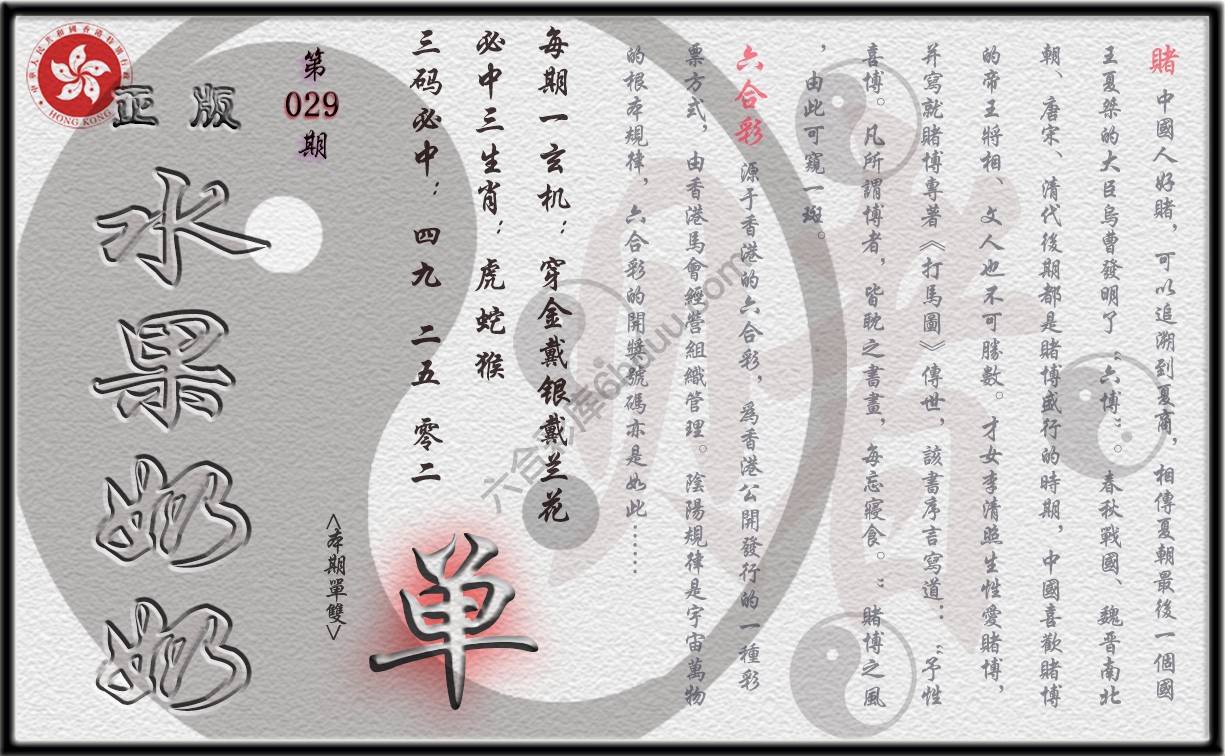 賭 中國人好賭，可以追溯到夏商，相傳夏朝最後一個國
王夏桀的大臣烏曹發明了“六博”。春秋戰國、魏晉南北
朝、唐宋、清代後期都是賭博盛行的時期，中國喜歡賭博
的帝王將相、文人也不可勝數。才女李清照生性愛賭博，
并寫就賭博專著《打馬圖》傳世，該書序言寫道：“予性
喜博。凡所謂博者，皆眈之書畫，每忘寢食。”賭博之風
，由此可窺一斑。
六合彩 源于香港的六合彩，爲香港公開發行的一種彩
票方式，由香港馬會經營組織管理。陰陽規律是宇宙萬物
的根本規律，六合彩的開獎號碼亦是如此……
每期一玄机：穿金戴银戴兰花
必中三生肖：虎蛇猴
三码必中：四九 二五 零二
单
<本期單雙>
第
029
期
正版
水果奶奶
HONG KONG
六合彩库6hduu.com